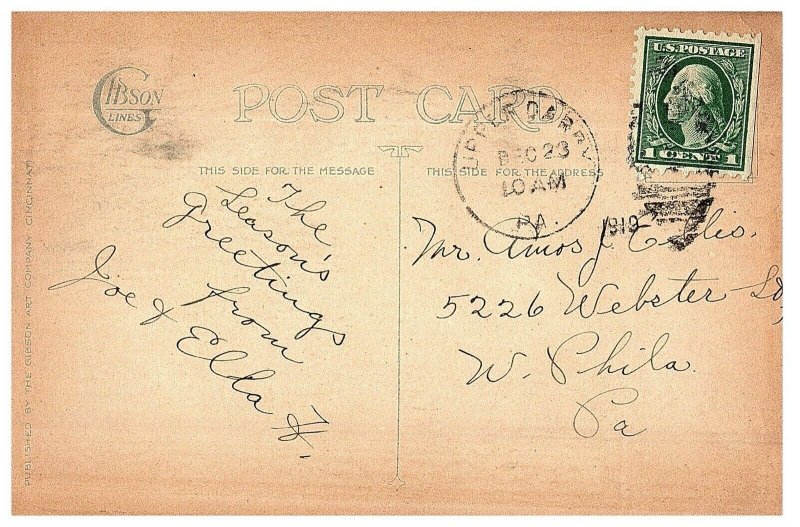 GIBSON
LINES
POST CARD
THIS SIDE FOR THE MESSAGE
THIS SIDE FOR THE ADDRESS
U.S. POSTAGE
1 CENT 1
UPPER DARBY
DEC 23
10 AM
PA.
1919
The
Season's
Greetings
from
Joe & Ella H.
Mr. Amos J. Collis.
5226 Webster St,
W. Phila.
Pa
PUBLISHED BY THE GIBSON ART COMPANY, CINCINNATI